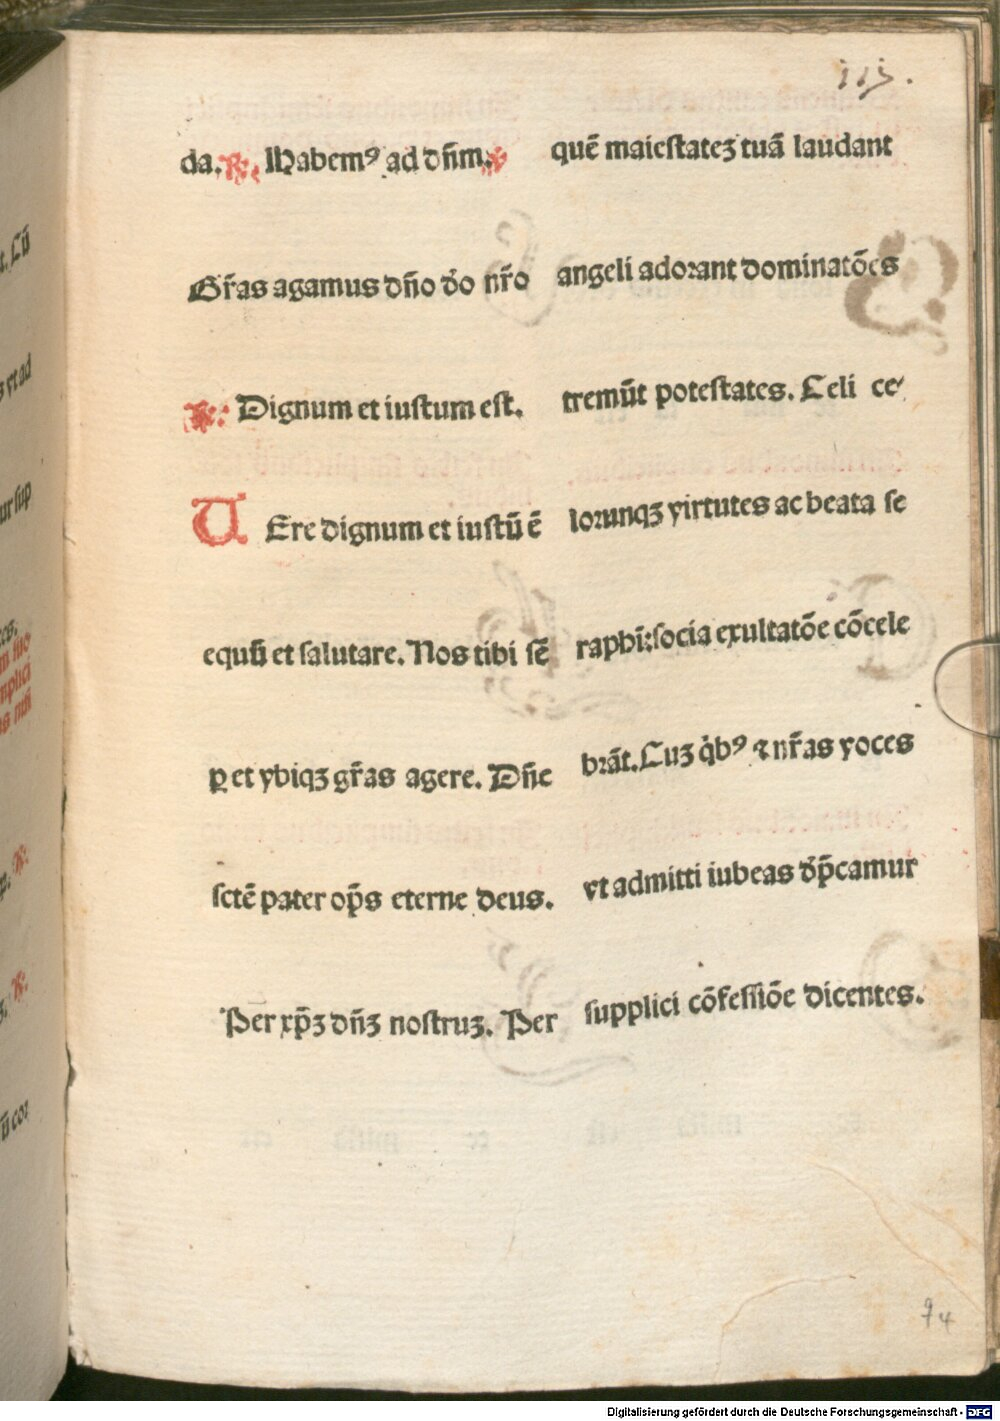 113.
da. ℟. Habemꝰ ad dñm. ℣
Gr̃as agamus dño dõ nr̃o
℟. Dignum et iustum est.
VEre dignum et iustũ ẽ
equũ et salutare. Nos tibi sẽ
ꝑ et vbiqꝫ gr̃as agere. Dñe
sctẽ pater op̃s eterne deus.
Per xp̃ꝫ dñꝫ nostruꝫ. Per
quẽ maiestateꝫ tuã laudant
angeli adorant dominatões
tremũt potestates. Celi ce
lorunqꝫ virtutes ac beata se
raphĩ: socia exultatõe cõcele
brãt. Cuꝫ q̇bꝰ ⁊ nr̃as voces
vt admitti iubeas dp̃camur
supplici cõfessiõe dicentes.
94
t. Cũ
s vt ad
ur sup
p. ℟:
ꝫ. ℟:
ũ cor
Digitalisierung gefördert durch die Deutsche Forschungsgemeinschaft - DFG